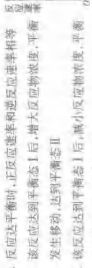 反应达平衡时,正反应速率和逆反应速率相等
该反应达到平衡态Ⅰ后,增大反应物浓度,平衡
发生移动,达到平衡态Ⅱ
该反应达到平衡态Ⅰ后,减小反应物浓度,平衡
反应
速率
0